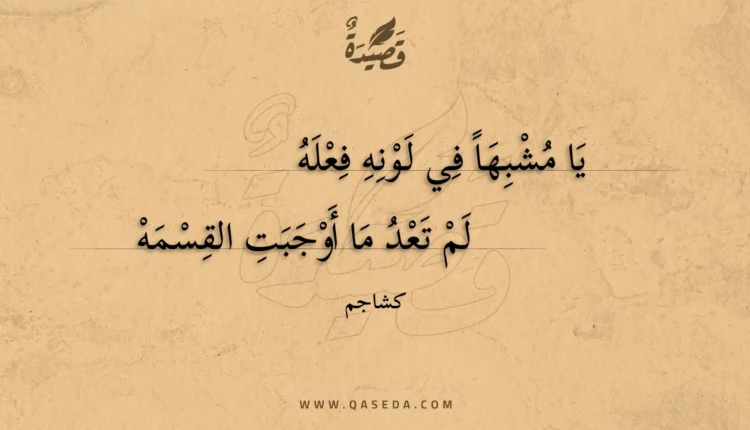 قَصِيْدَةٌ
يَا مُشْبِهَاً فِي لَوْنِهِ فِعْلَهُ
لَمْ تَعْدُ مَا أَوْجَبَتِ القِسْمَهْ
كشاجم
WWW.QASEDA.COM